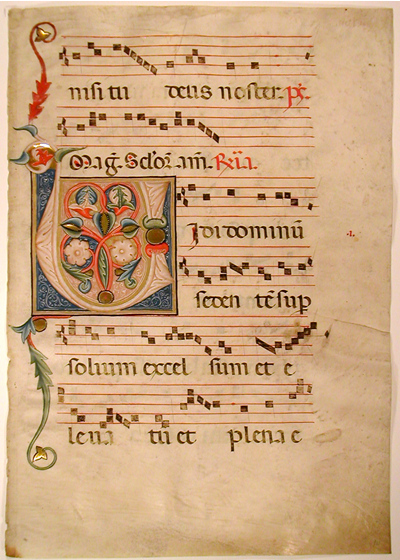 nisi tu deus noster. ps̄
Mag̃.
VIdi dominū
seden tē sup
solium excel sum et e
leua tū et plena e